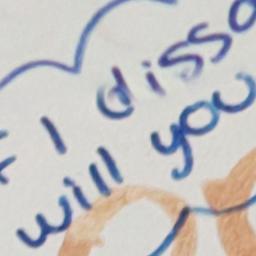 I diss
will you